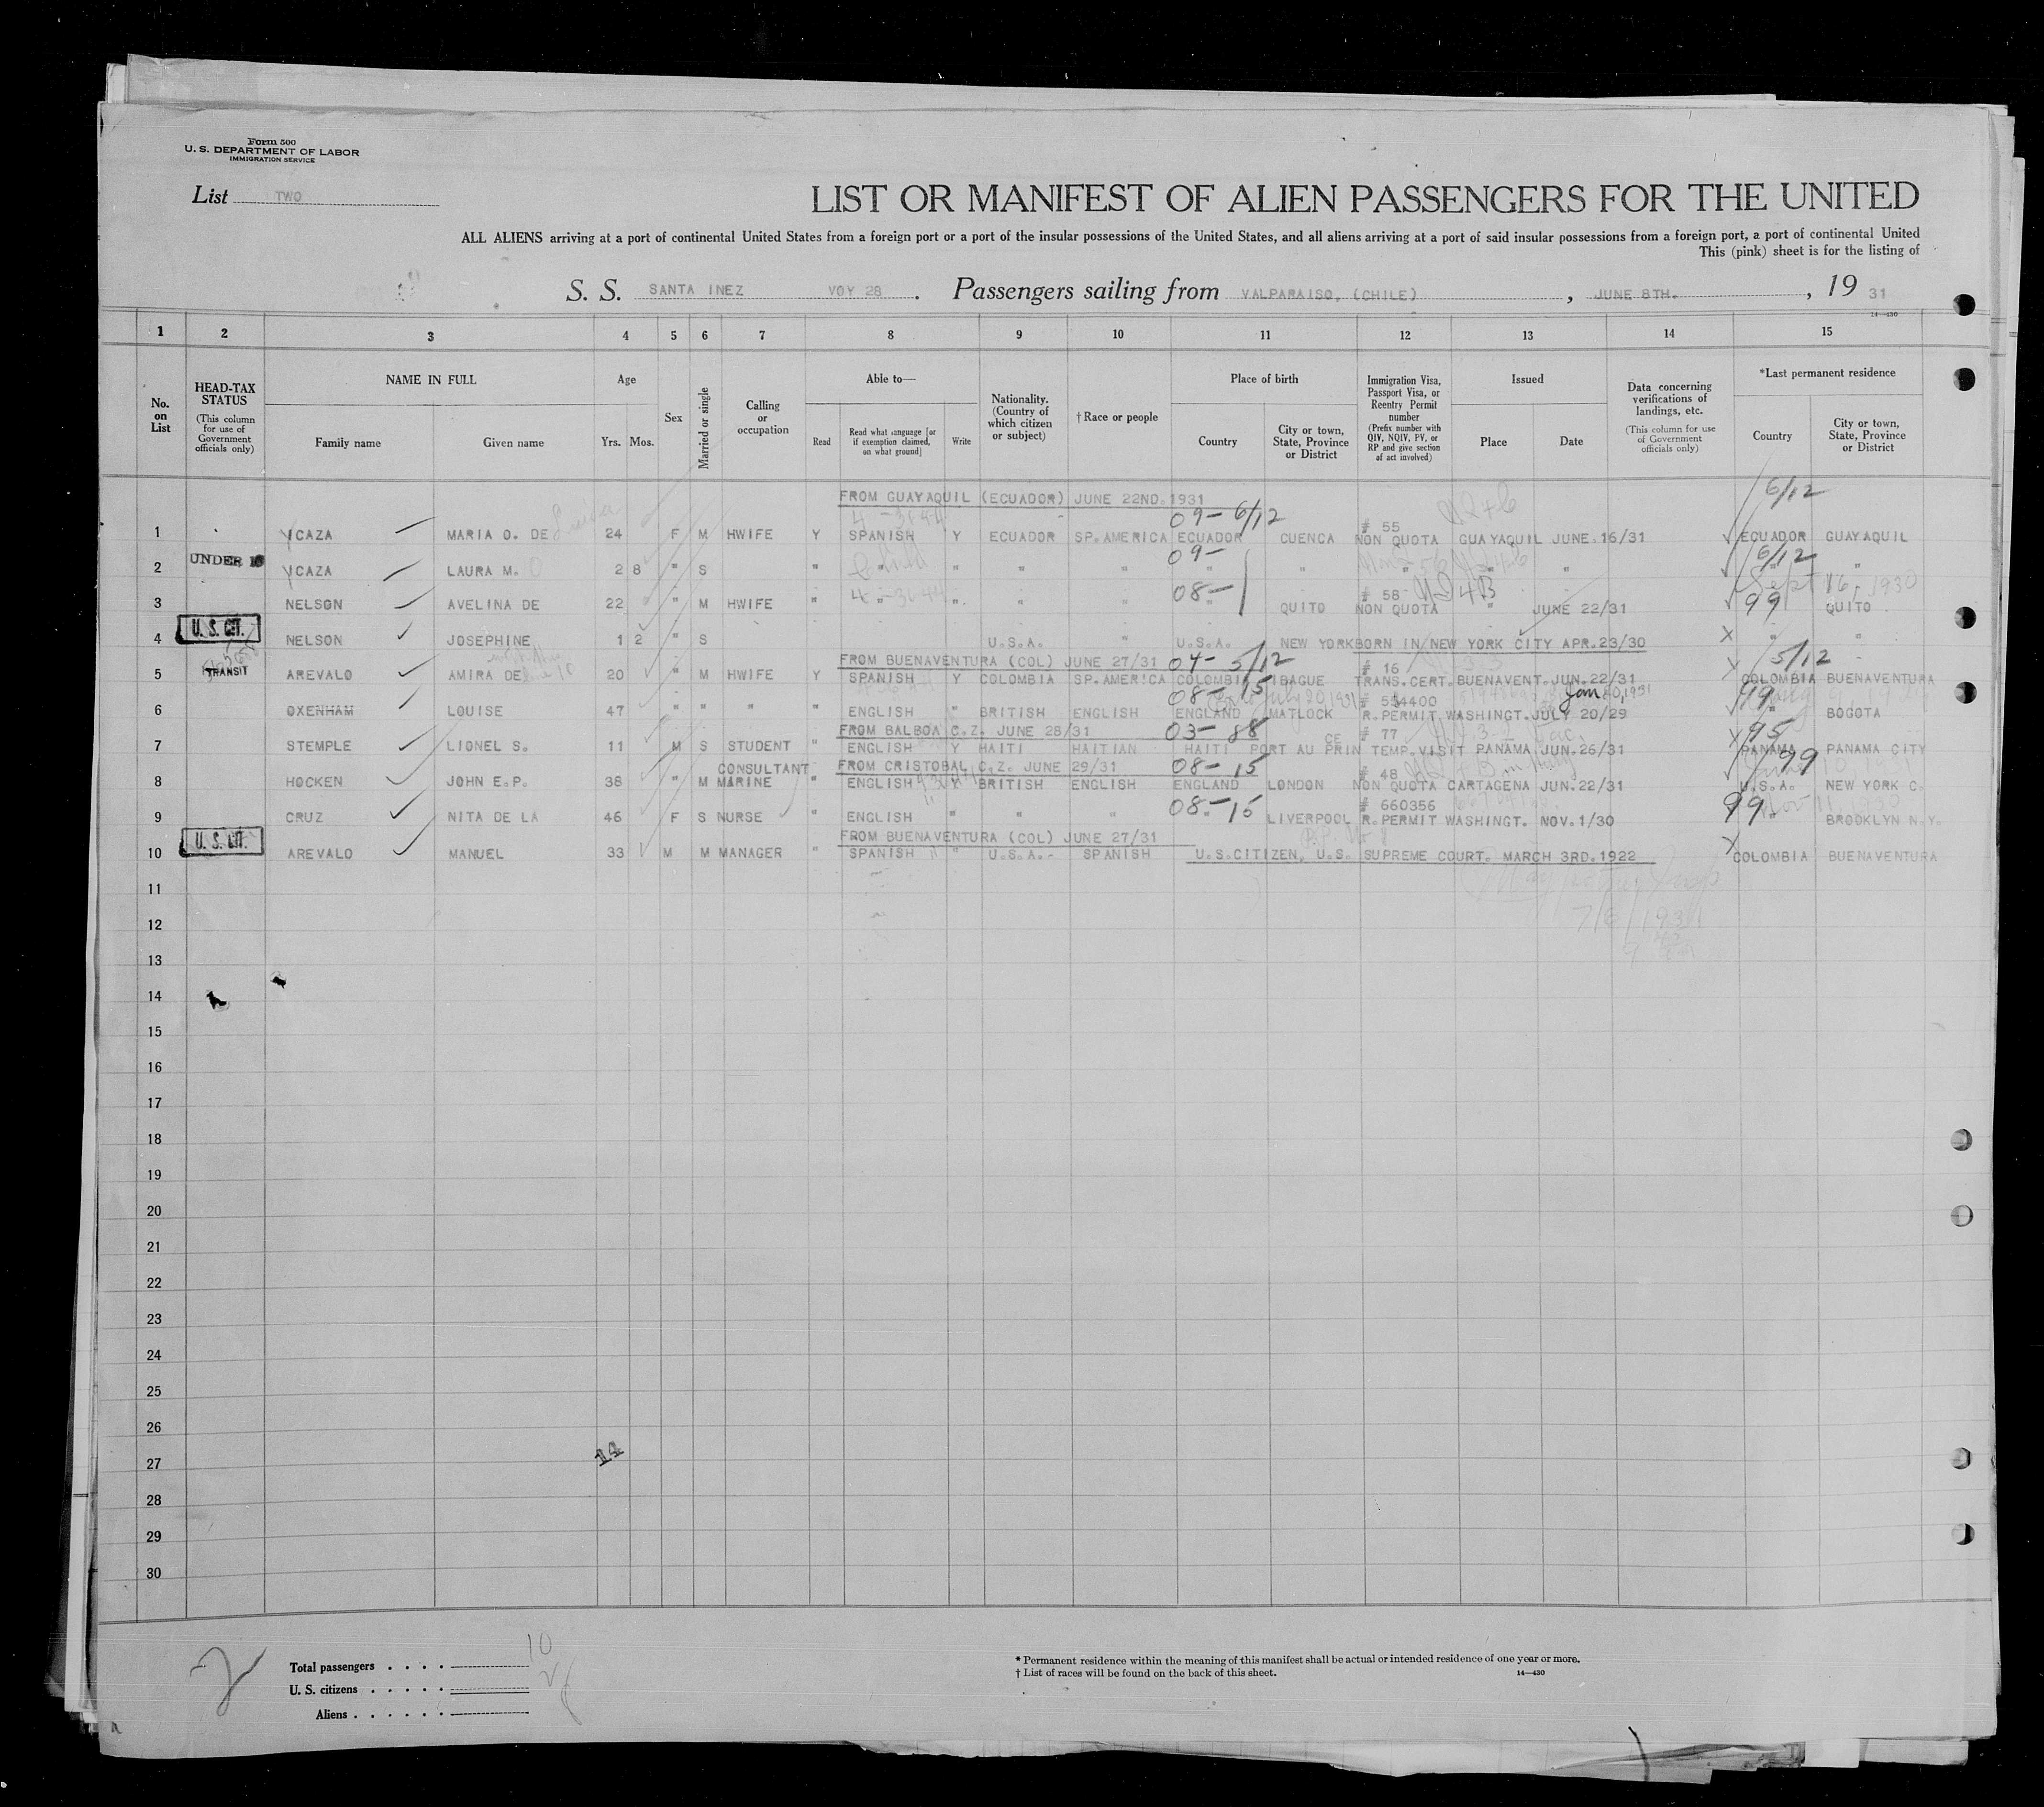 Form 500
U. S. DEPARTMENT OF LABOR
IMMIGRATION SERVICE
List TWO
LIST OR MANIFEST OF ALIEN PASSENGERS FOR THE UNITED
ALL ALIENS arriving at a port of continental United States from a foreign port or a port of the insular possessions of the United States, and all aliens arriving at a port of said insular possessions from a foreign port, a port of continental United
This (pink) sheet is for the listing of
S. S. SANTA INEZ VOY 28 . Passengers sailing from VALPARAISO, (CHILE) , JUNE 8TH. , 19 31
14—430
1 2 3 4 5 6 7 8 9 10 11 12 13 14 15
No. on List
HEAD-TAX STATUS (This column for use of Government officials only)
NAME IN FULL
Family name Given name
Age
Yrs. Mos.
Sex
Married or single
Calling or occupation
Able to—
Read
Read what language [or if exemption claimed, on what ground]
Write
Nationality. (Country of which citizen or subject)
† Race or people
Place of birth
Country
City or town, State, Province or District
Immigration Visa, Passport Visa, or Reentry Permit number (Prefix number with QIV, NQIV, PV, or RP and give section of act involved)
Issued
Place Date
Data concerning verifications of landings, etc. (This column for use of Government officials only)
*Last permanent residence
Country
City or town, State, Province or District
FROM GUAYAQUIL (ECUADOR) JUNE 22ND. 1931 6/12
09- 6/12 # 55
1 YCAZA MARIA O. DE 24 F M HWIFE Y SPANISH Y ECUADOR SP.AMERICA ECUADOR CUENCA NON QUOTA GUAYAQUIL JUNE.16/31 ECUADOR GUAYAQUIL
UNDER 16 09- 6/12
2 YCAZA LAURA M. 2 8 " S " " " " " " " " " " " "
08- # 58 Sept 16, 1930
3 NELSON AVELINA DE 22 " M HWIFE " " " " " " QUITO NON QUOTA " JUNE 22/31 99 QUITO
U. S. CIT.
4 NELSON JOSEPHINE 1 2 " S U.S.A. " U.S.A. NEW YORK BORN IN NEW YORK CITY APR.23/30 X " "
FROM BUENAVENTURA (COL) JUNE 27/31 04- 5/12 # 16 5/12
TRANSIT
5 AREVALO AMIRA DE 20 " M HWIFE Y SPANISH Y COLOMBIA SP.AMERICA COLOMBIA IBAGUE TRANS.CERT. BUENAVENT. JUN.22/31 X COLOMBIA BUENAVENTURA
08- 15 July 20, 1931 # 554400 Jan 20, 1931 99
6 OXENHAM LOUISE 47 " " " " ENGLISH " BRITISH ENGLISH ENGLAND MATLOCK R.PERMIT WASHINGT. JULY 20/29 " BOGOTA
FROM BALBOA C.Z. JUNE 28/31 03- 88 # 77 95
7 STEMPLE LIONEL S. 11 M S STUDENT " ENGLISH Y HAITI HAITIAN HAITI PORT AU PRINCE TEMP.VISIT PANAMA JUN.26/31 X PANAMA PANAMA CITY
FROM CRISTOBAL C.Z. JUNE 29/31 08- 15 # 48 99
8 HOCKEN JOHN E.P. 38 " M CONSULTANT MARINE " ENGLISH " BRITISH ENGLISH ENGLAND LONDON NON QUOTA CARTAGENA JUN.22/31 U.S.A. NEW YORK C.
08- 15 # 660356 99 Nov 11, 1930
9 CRUZ NITA DE LA 46 F S NURSE " ENGLISH " " " " LIVERPOOL R.PERMIT WASHINGT. NOV.1/30 " BROOKLYN N.Y.
U. S. CIT.
FROM BUENAVENTURA (COL) JUNE 27/31
10 AREVALO MANUEL 33 M M MANAGER " SPANISH " U.S.A. SPANISH U.S.CITIZEN, U.S. SUPREME COURT. MARCH 3RD. 1922 X COLOMBIA BUENAVENTURA
11
12 7/6/1931
13
14
15
16
17
18
19
20
21
22
23
24
25
26
27 14
28
29
30
2
Total passengers . . . . 10
U. S. citizens . . . . . 2
Aliens . . . . . .
* Permanent residence within the meaning of this manifest shall be actual or intended residence of one year or more.
† List of races will be found on the back of this sheet. 14—430